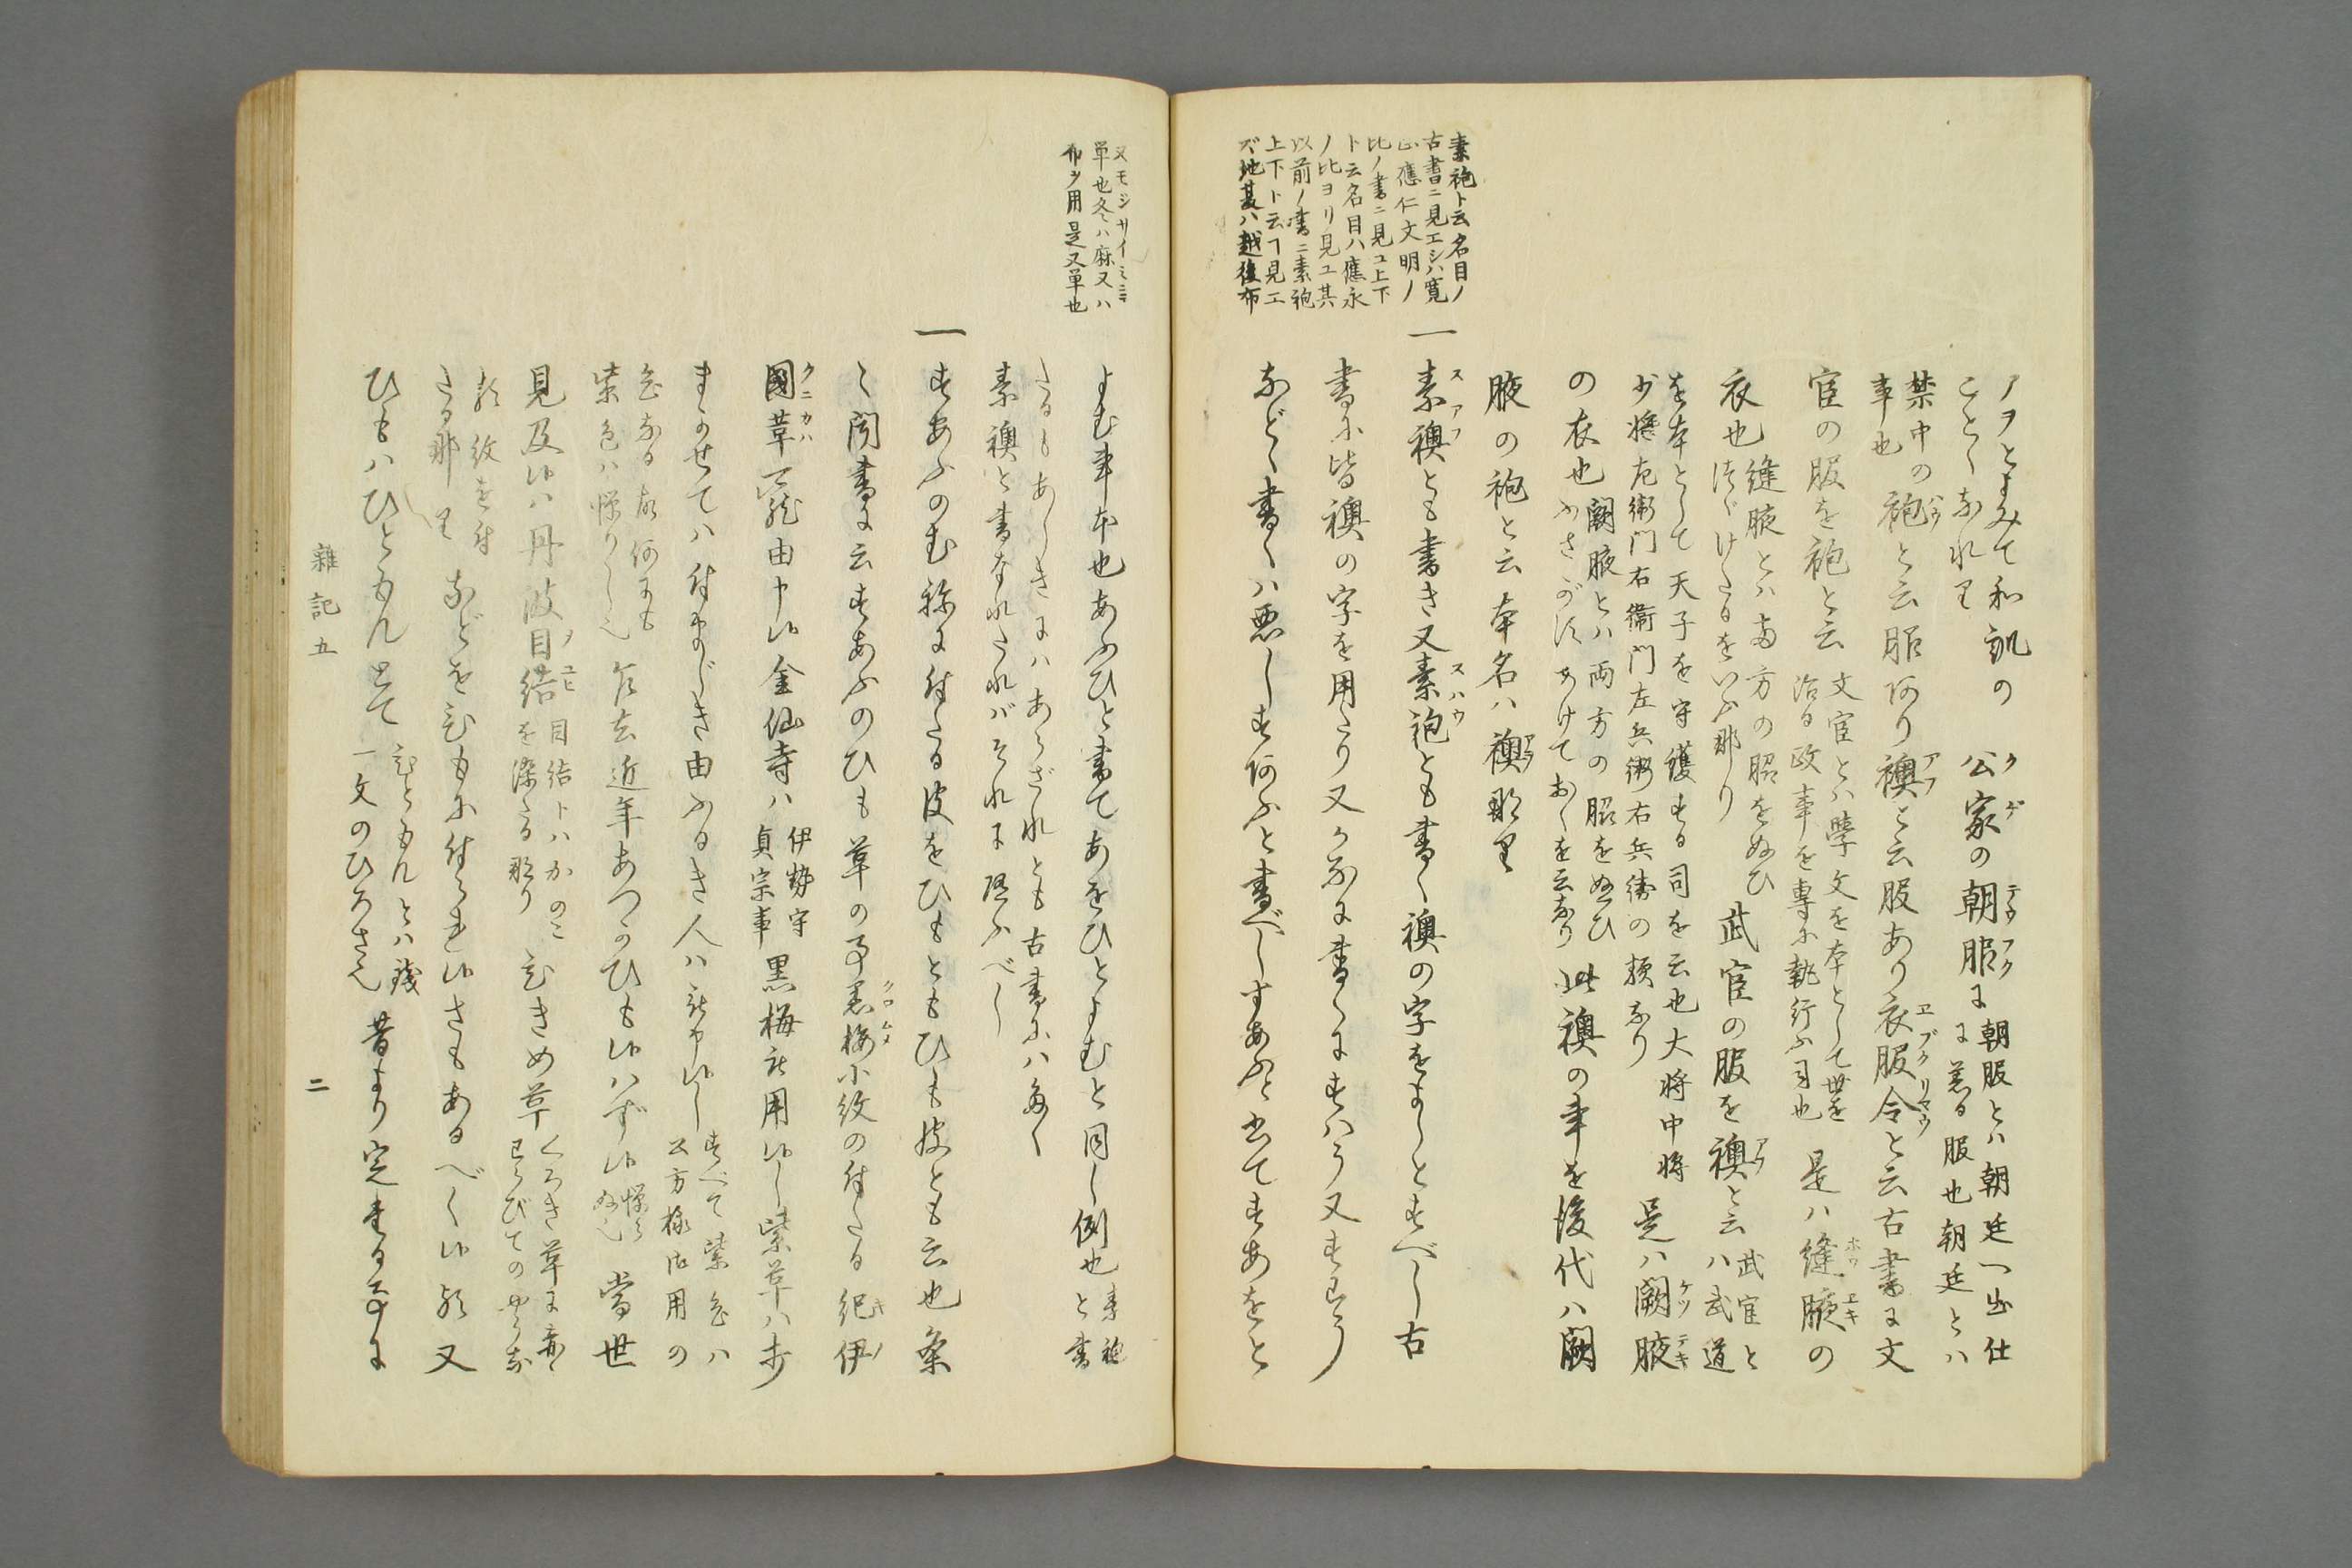 素袍ト云名目ノ
古書ニ見エシハ寛
正應仁文明ノ
比ノ書ニ見ユ上下
ト云名目ハ應永
ノ比ヨリ見ユ其
以前ノ書ニ素袍
上下ト云ヿ見エ
ズ地夏ハ越後布
アヲとよみて和訓の
ことくなれり
公家の朝服に
朝服とハ朝廷へ出仕
に着る服也朝廷とハ
禁中の
事也
袍と云服有り襖と云服あり衣服令と云古書に文
官の服を袍と云
文官とハ學文を本として世を
治る政事を専に執行ふ司也
是ハ縫腋の
衣也
縫腋とハ両方の脇をぬひ
つゞけたるをいふ那り
武官の服を襖と云
武官と
ハ武道
を本として天子を守護する司を云也大将中将
少将左衛門右衛門左兵衛右兵衛の類なり
是ハ闕腋
の衣也
闕腋とハ両方の脇をぬひ
ふさがずあけておくを云なり
此襖の事を後代ハ闕
腋の袍と云本名ハ襖那り
一素襖とも書き又素袍とも書く襖の字をよしとすべし古
書に皆襖の字を用たり又かなに書くにすハう又すわう
などゝ書くハ悪しすあふと書べしすあふと書てすあをと
又モジサイミニテ
単也冬ハ麻又ハ
布ヲ用是又単也
よむ事本也あふひと書てあをひとよむと同し例也
素袍
と書
たるもあしきにハあらざれとも古書にハ多く
素襖と書なれたればそれに随ふべし
一すあふのむねに付たる皮をひもともひも皮とも云也条
々聞書に云すあふのひも革の事黒梅小紋の付たる紀伊
國革可然由申候金仙寺ハ
伊勢守
貞宗事
黒梅被用候し紫革ハ赤
まかせてハ付まじき由ふるき人ハ被申候し
すべて紫色ハ
公方様御用の
色なる故何にも
紫色ハ憚りし也
乍去近年あつかひも候ハず候
憚ら
ぬ也
當世
見及候ハ丹波目結
目結トハかのこ
を染たる那り
ひきめ革
くろき革に音
わらびての やうな
る紋を付
たる那り
などをひもに付られ候さもあるべく候 又
ひもハひともんとて
ひともんとハ錢
一文のひろさ也
昔より定まる事に
雜記五
二